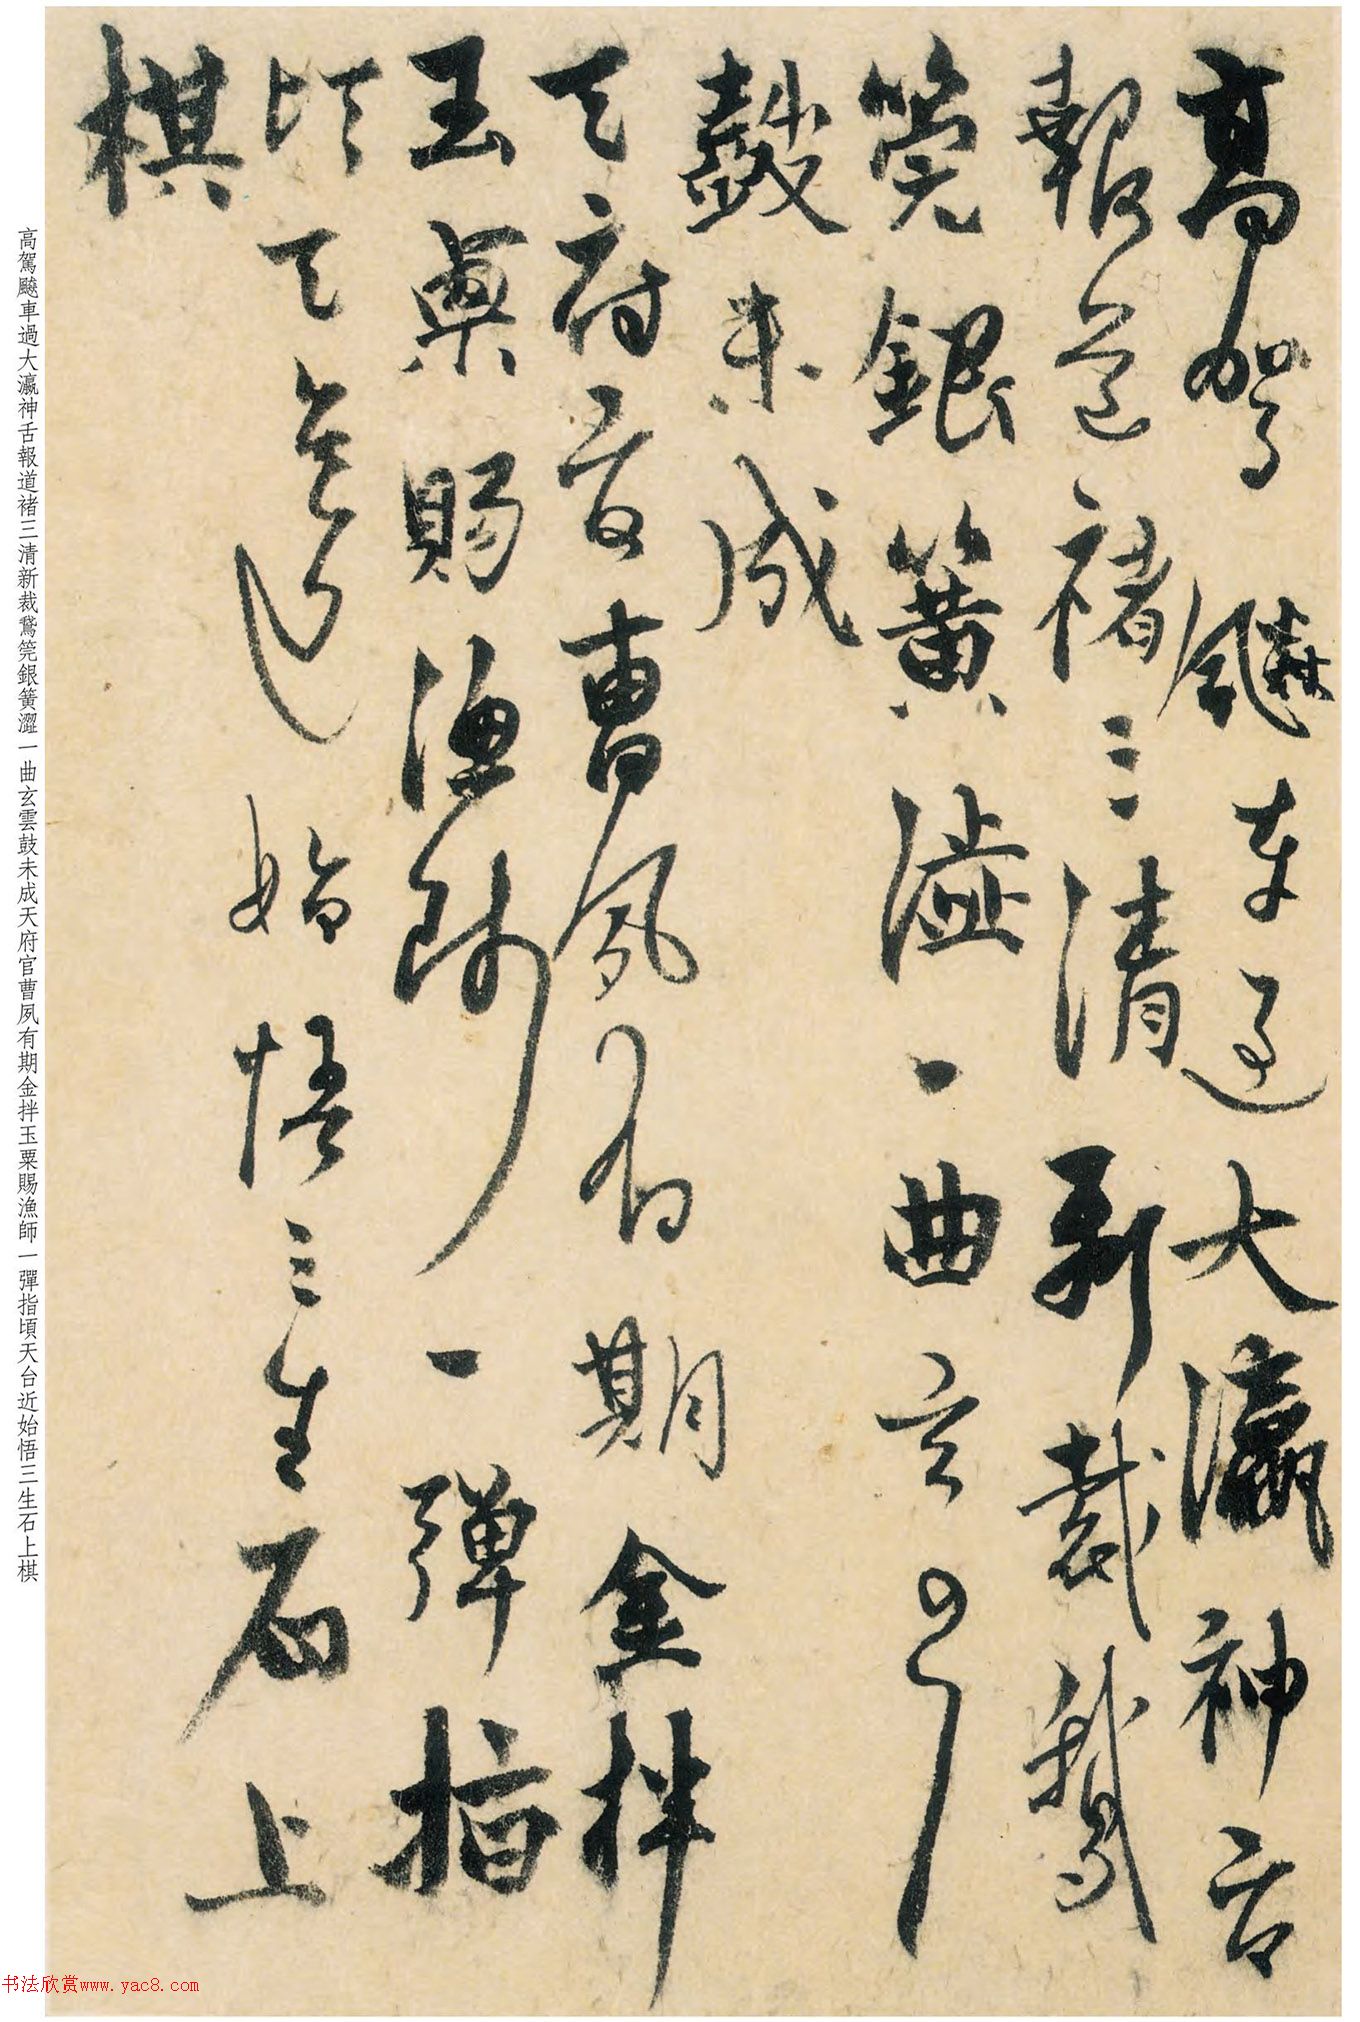 高駕飈車過大瀛神舌
報道褚三清新裁鵞
筦銀簧澀一曲玄雲
鼓未成
天府官曹夙有期金拌
玉粟賜漁師一彈指
頃天台近始悟三生石上
棋
高駕飈車過大瀛神舌報道褚三清新裁鵞筦銀簧澀一曲玄雲鼓未成天府官曹夙有期金拌玉粟賜漁師一彈指頃天台近始悟三生石上棋
书法欣赏www.yac8.com